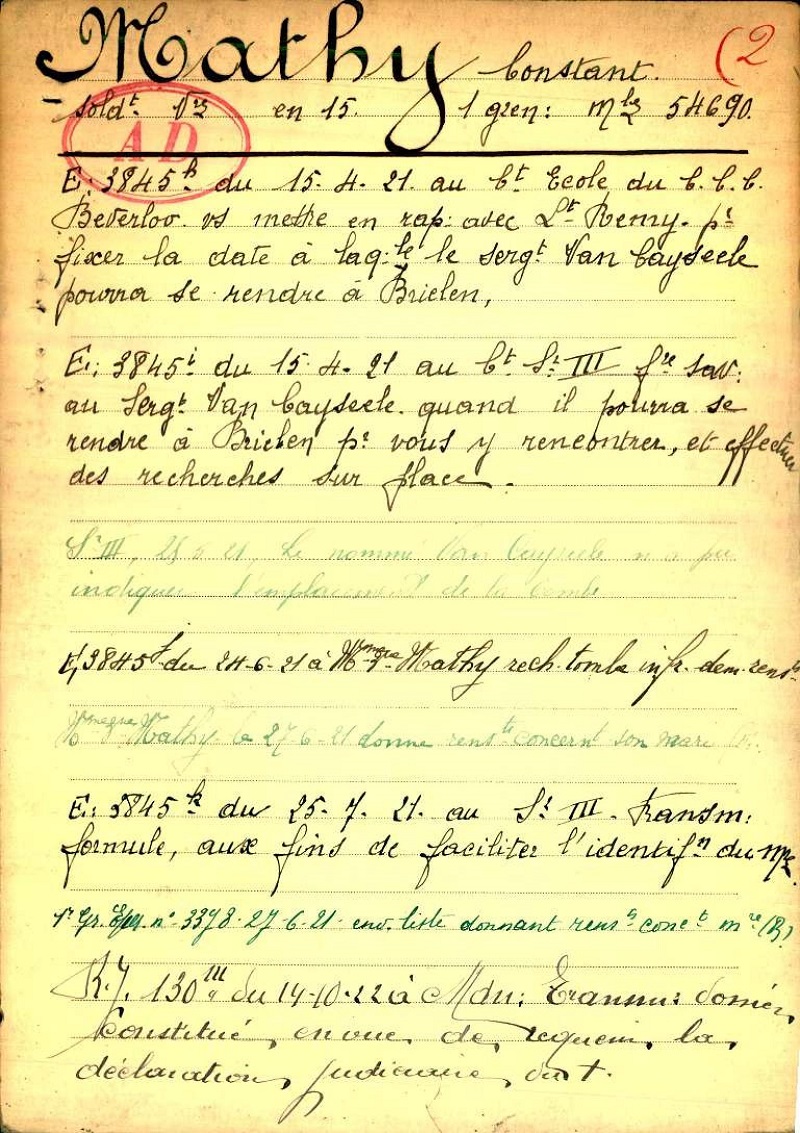 Mathy Constant. (2
soldt. Vre en 15. 1 gren: mle 54690.
A D
E: 3845 k du 15-4-21. au Ct Ecole du C.C.C.
Beverloo. vs mettre en rap: avec Lt Remy. pr
fixer la date à laq:le le sergt Van Cayseele
pourra se rendre à Brielen,
E: 3845 i du 15-4-21 au Ct St III fre sav:
au Sergt Van Cayseele quand il pourra se
rendre à Brielen pr vous y rencontrer, et effectuer
des recherches sur place.
St III, 21, Le nommé Van Cayseele n'a pu
indiquer l'emplacement de la tombe
E, 3845 l du 24-6-21 à Mathy rech. tombe infr. dem. rensts
Mathy le 27-6-21 donne rensts concernt son mari
E: 3845 k du 25-7-21. au St III. Transm:
formule, aux fins de faciliter l'identifn du mre.
1r Gr. no 3378-27-6-21 env. liste donnant rensts conct mre (R)
R.J. 130 III du 14-10-22 à Mdn: Transm: dossier
constitué, en vue de requérir, la,
déclaration, judiciaire, du †.